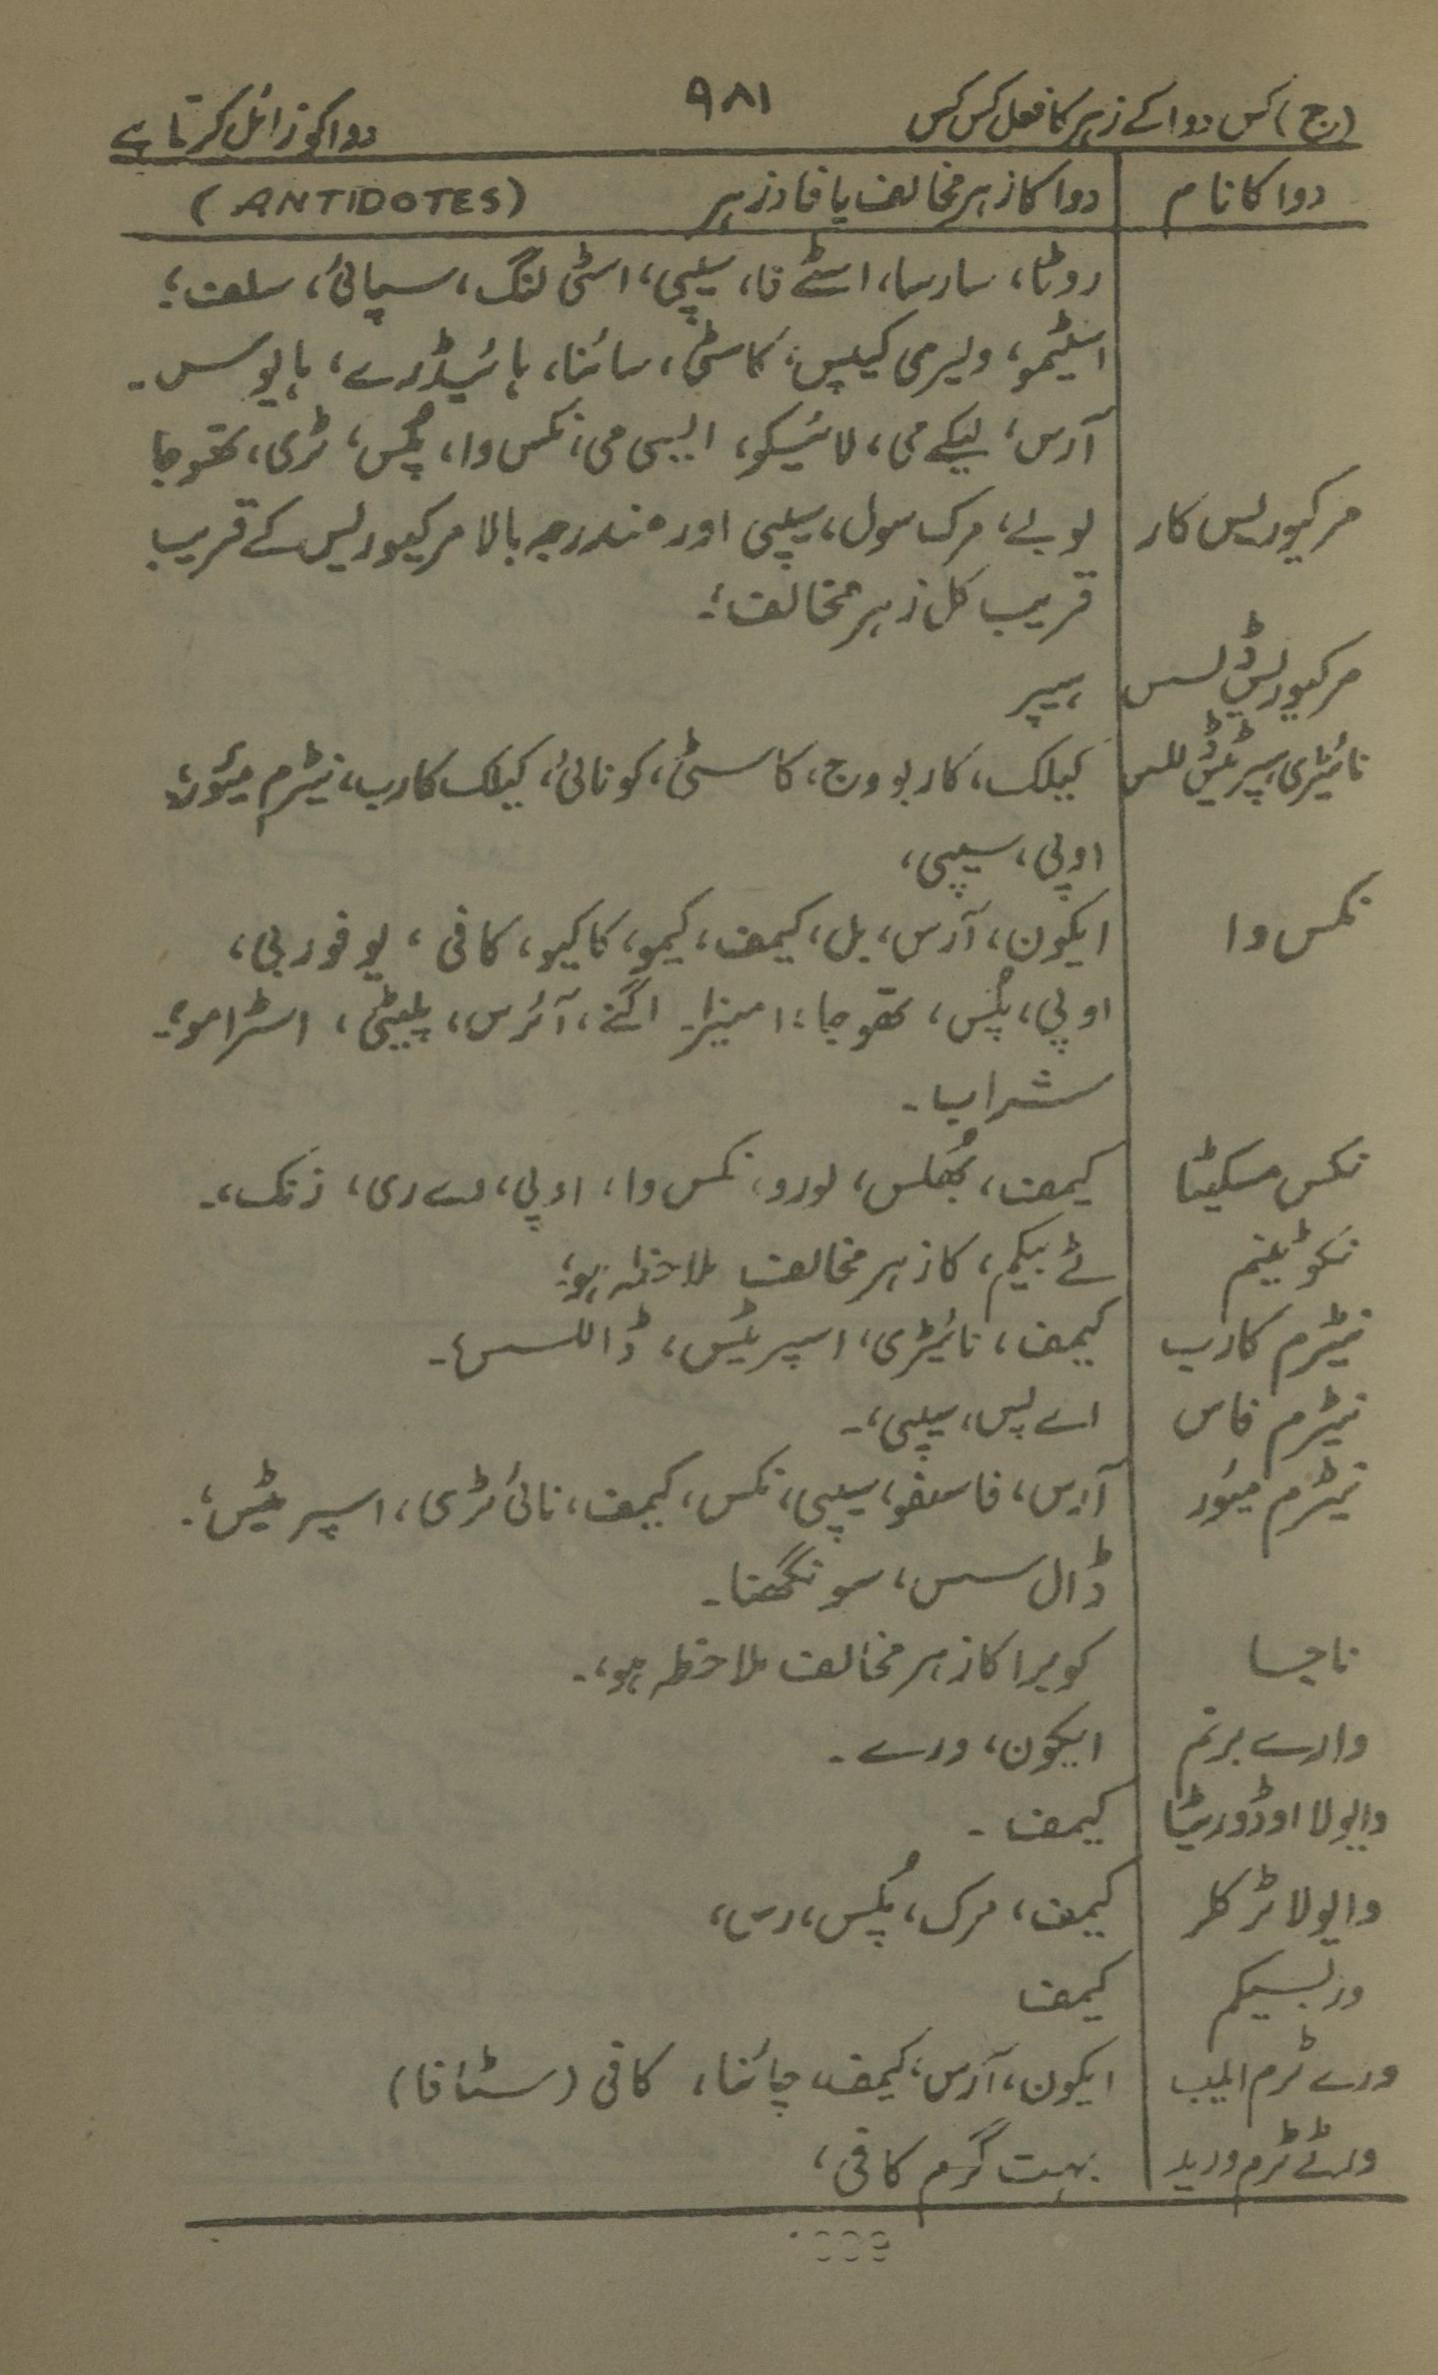 (ج) کس دوا کے زہر کا فعل کس کس ۹۸۱ دوا کو زائل کرتا ہے
دوا کا نام دوا کا زہر مخالف یا فادزہر (ANTIDOTES)
روٹا، سارسا، اسٹے فا، سیپی، اسٹی لنگ، سپائی، سلف؛
اسٹیمو، ویرمی کیلپس، کاسٹی، سائنا، ہائیڈرے، ہایوس۔
آرس، لیکے می، لائیکو، ایسی می، نکس وا، پلس، ٹری، تھوجا
مرکیوریس کار لوبے، مرک سول، سیپی اور مندرجہ بالا مرکیوریس کے قریب
قریب کل زہر مخالف؛۔
ہیپر
کیلک، کاربو وج، کاسٹی، کونائی، کیلک کارب، نیٹرم میور،
اوپی، سیپی،
نکس وا ایکون، آرس، بل، کیمف، کیمو، کاکیو، کافی، یوفوربی،
اوپی، پلس، تھوجا، امبزا۔ اگنے، آئرس، پلیٹی، اسٹرامو،۔
شراب۔
نکس مسکیٹا کیمف، جلس، لورو، نکس وا، اوپی، رے ری، زنک،۔
نکوٹینم ٹے بیکم، کا زہر مخالف ملاحظہ ہو؛
نیٹرم کارب کیمف، نائیٹری، اسپریٹس، ڈاللسس،۔
نیٹرم فاس اے پس، سیپی،۔
نیٹرم میور آرس، فاسفو، سیپی، نکس، کیمف، نائی ٹری، اسپریٹس،
ڈال سس، سونگھنا۔
ناجیا کوبرا کا زہر مخالف ملاحظہ ہو،۔
وارے برنم ایکون، ورے۔
وایولا اوڈوریٹا کیمف۔
وایولا ٹرکلر کیمف، مرک، پلس، رس،
وربسیکم کیمف
ورے ٹرم ایلب ایکون، آرس، کیمف، چائنا، کافی (سٹافا)
ورٹے ٹرم ورید بہت گرم کافی،